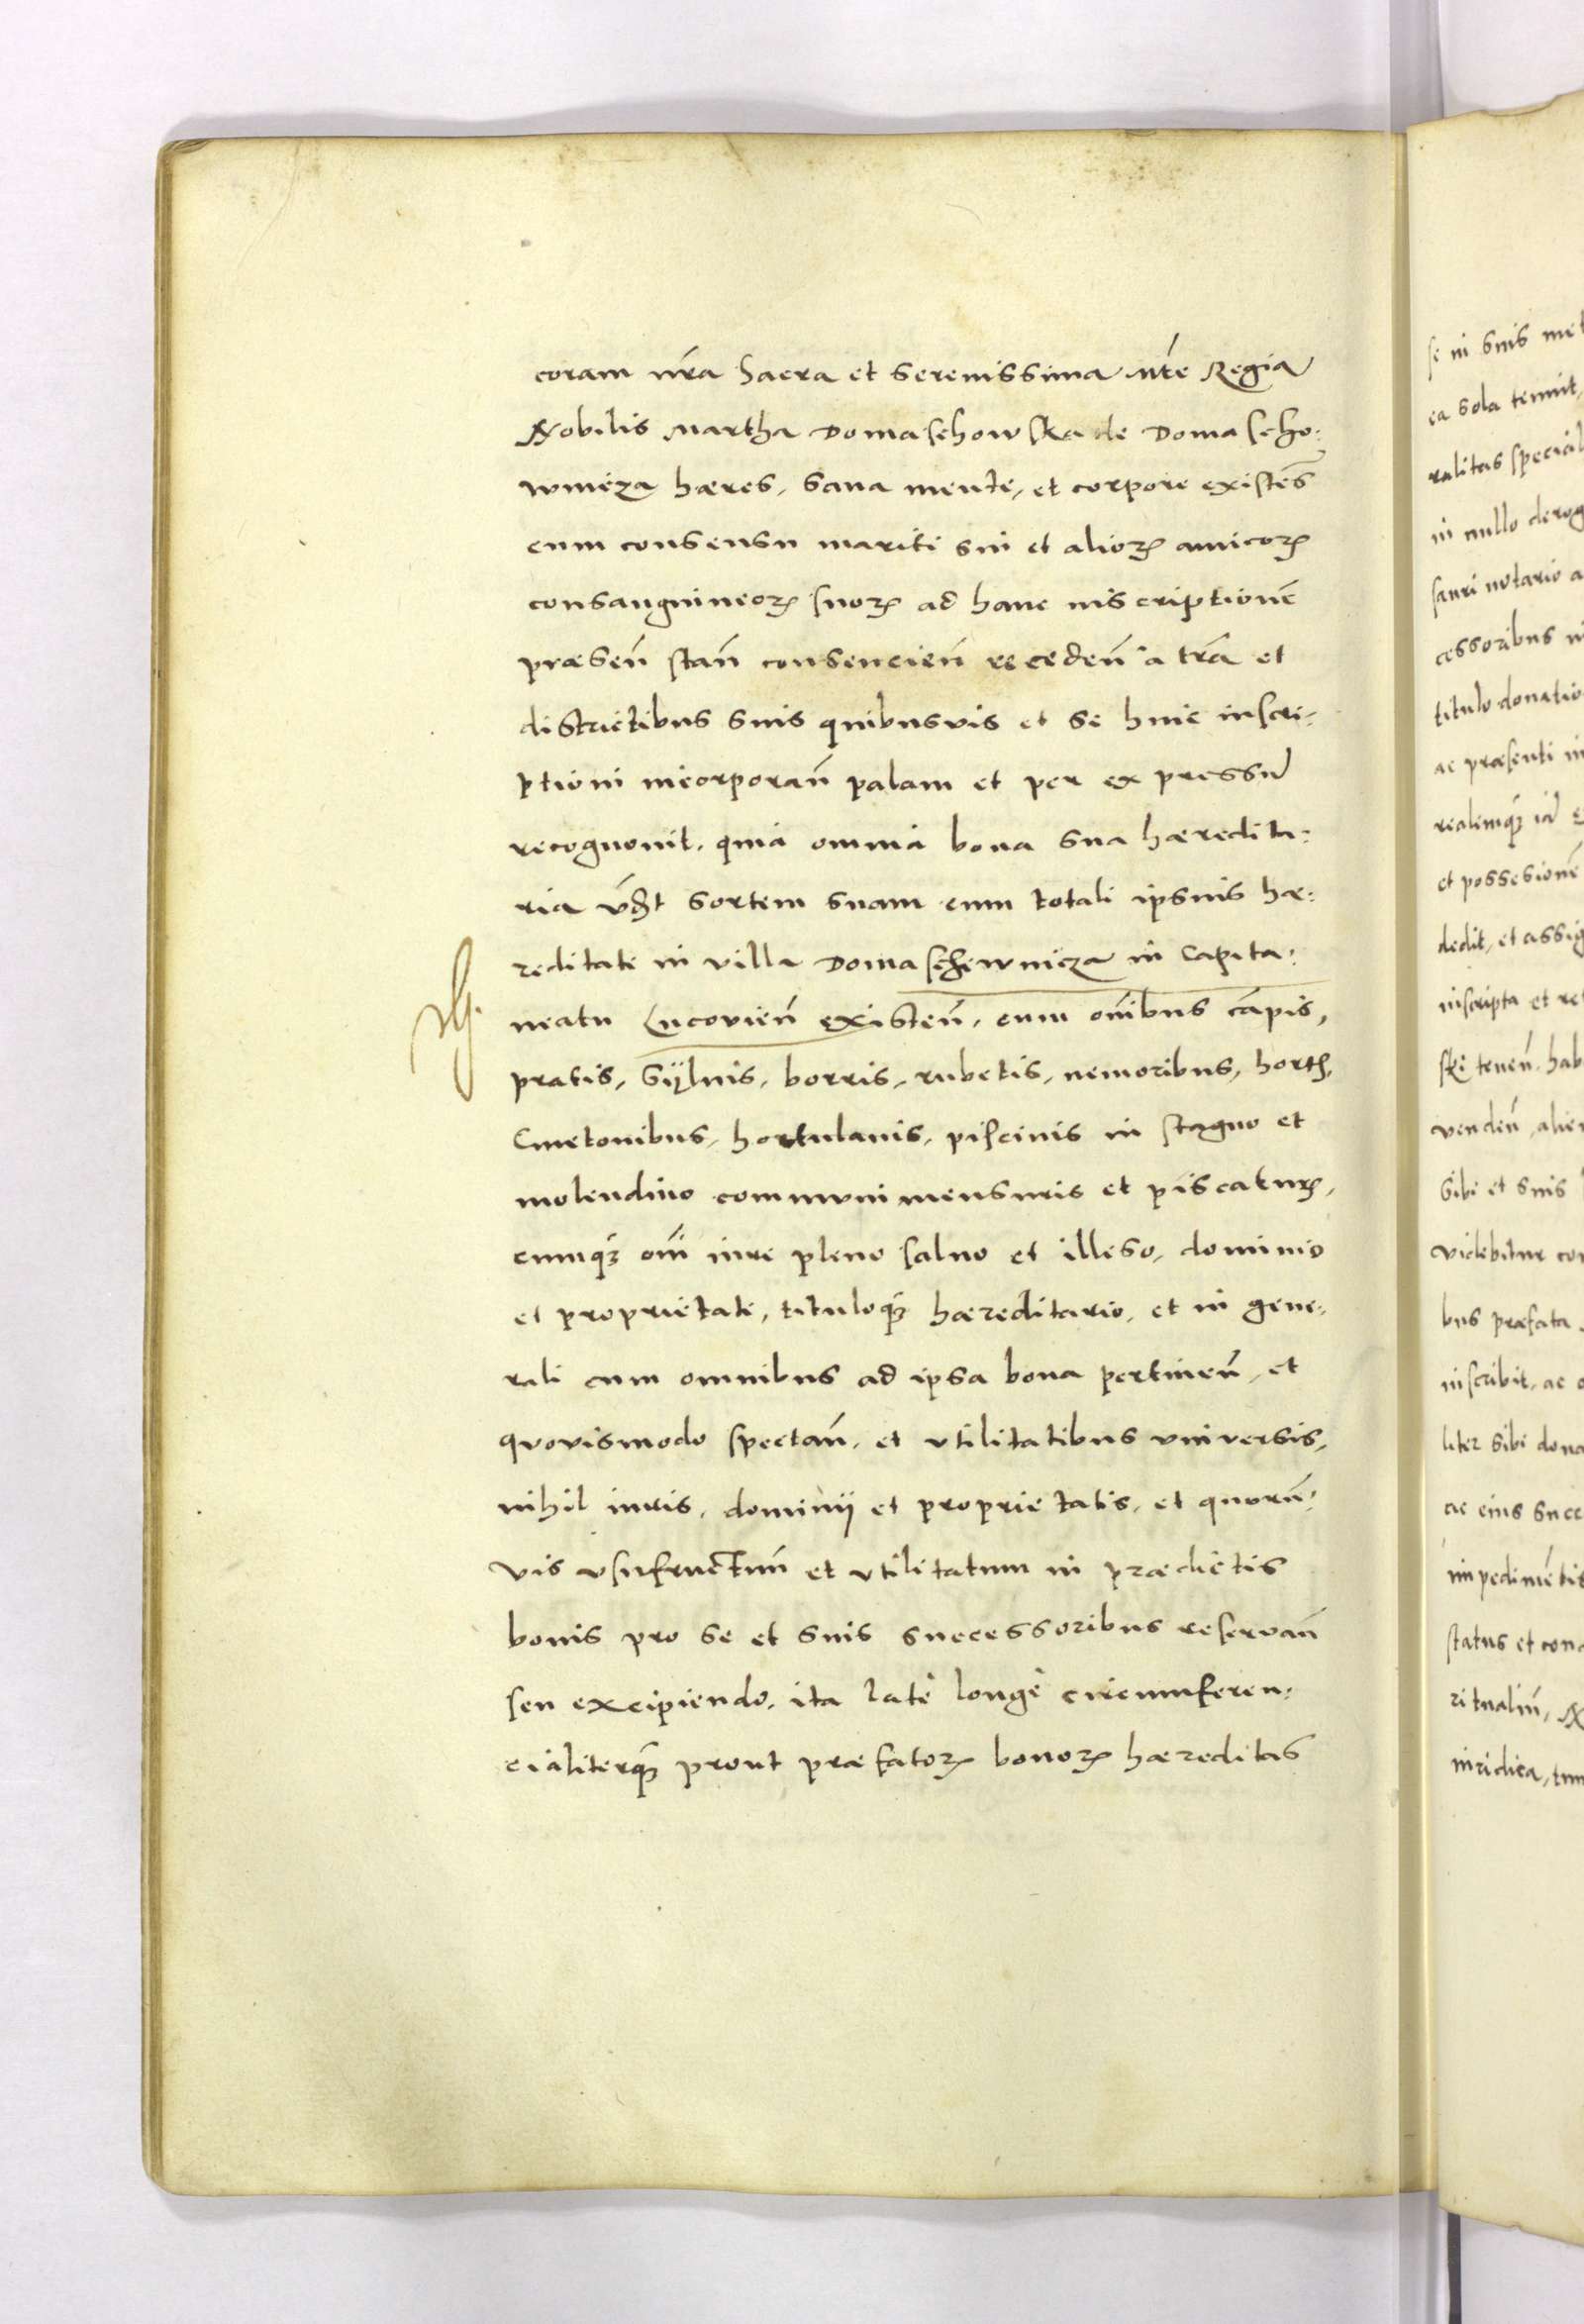 coram nr̃a sacra et serenissima Mt̃e Regia
Nobilis Martha Domaschowska de Domascho:
wnicza hæres, sana mente, et corpore existẽs
cum consensu mariti sui et alioꝝ amicoꝝ
consanguineoꝝ suoꝝ ad hanc inscriptionẽ
præseñ stañ consencieñ recedeñ a tr̃a et
districtibus suis quibusvis et se huic inscri:
ptioni incorporañ palam et per expressũ
recognovit, quia omnia bona sua hæredita:
ria vꝫt sortem suam cum totali ipsius hæ:
reditate in villa Domaschewnicza in Capita:
neatu Lucovieñ existeñ, cum oĩbus cãpis,
pratis, sÿlvis, borris, rubetis, nemoribus, hortꝭ,
Cmetonibus, hortulanis, piscinis in stagno et
molendino communi mensuris et piscaturꝭ,
cumqꝫ oĩ iure pleno salvo et illeso, dominio
et proprietate, tituloqꝫ hæreditario, et in gene:
rali cum omnibus ad ipsa bona pertineñ, et
quovismodo spectañ, et utilitatibus universis,
nihil iuris, dominij et proprietatis, et quorũ:
vis usufructuũ et utilitatum in prædictis
bonis pro se et suis successoribus reservañ
seu excipiendo, ita latè longè circumferen:
cialiterqꝫ prout præfatoꝝ bonoꝝ hæreditas
se in suis met
ea sola tenuit,
ralitas special
in nullo derog
sauri notario a
cessoribus
titulo donatio
ac præsenti in
realemqꝫ
et possesionẽ
dedit, et assig
inscripta et re
ski teneñ, hab
vendeñ, alie
sibi et suis
videbitur co
bus præfata
inscribit, ac
liter sibi dona
ac eius succ
impedimẽtis
status et con
ritualiũ,
iuridica, tum